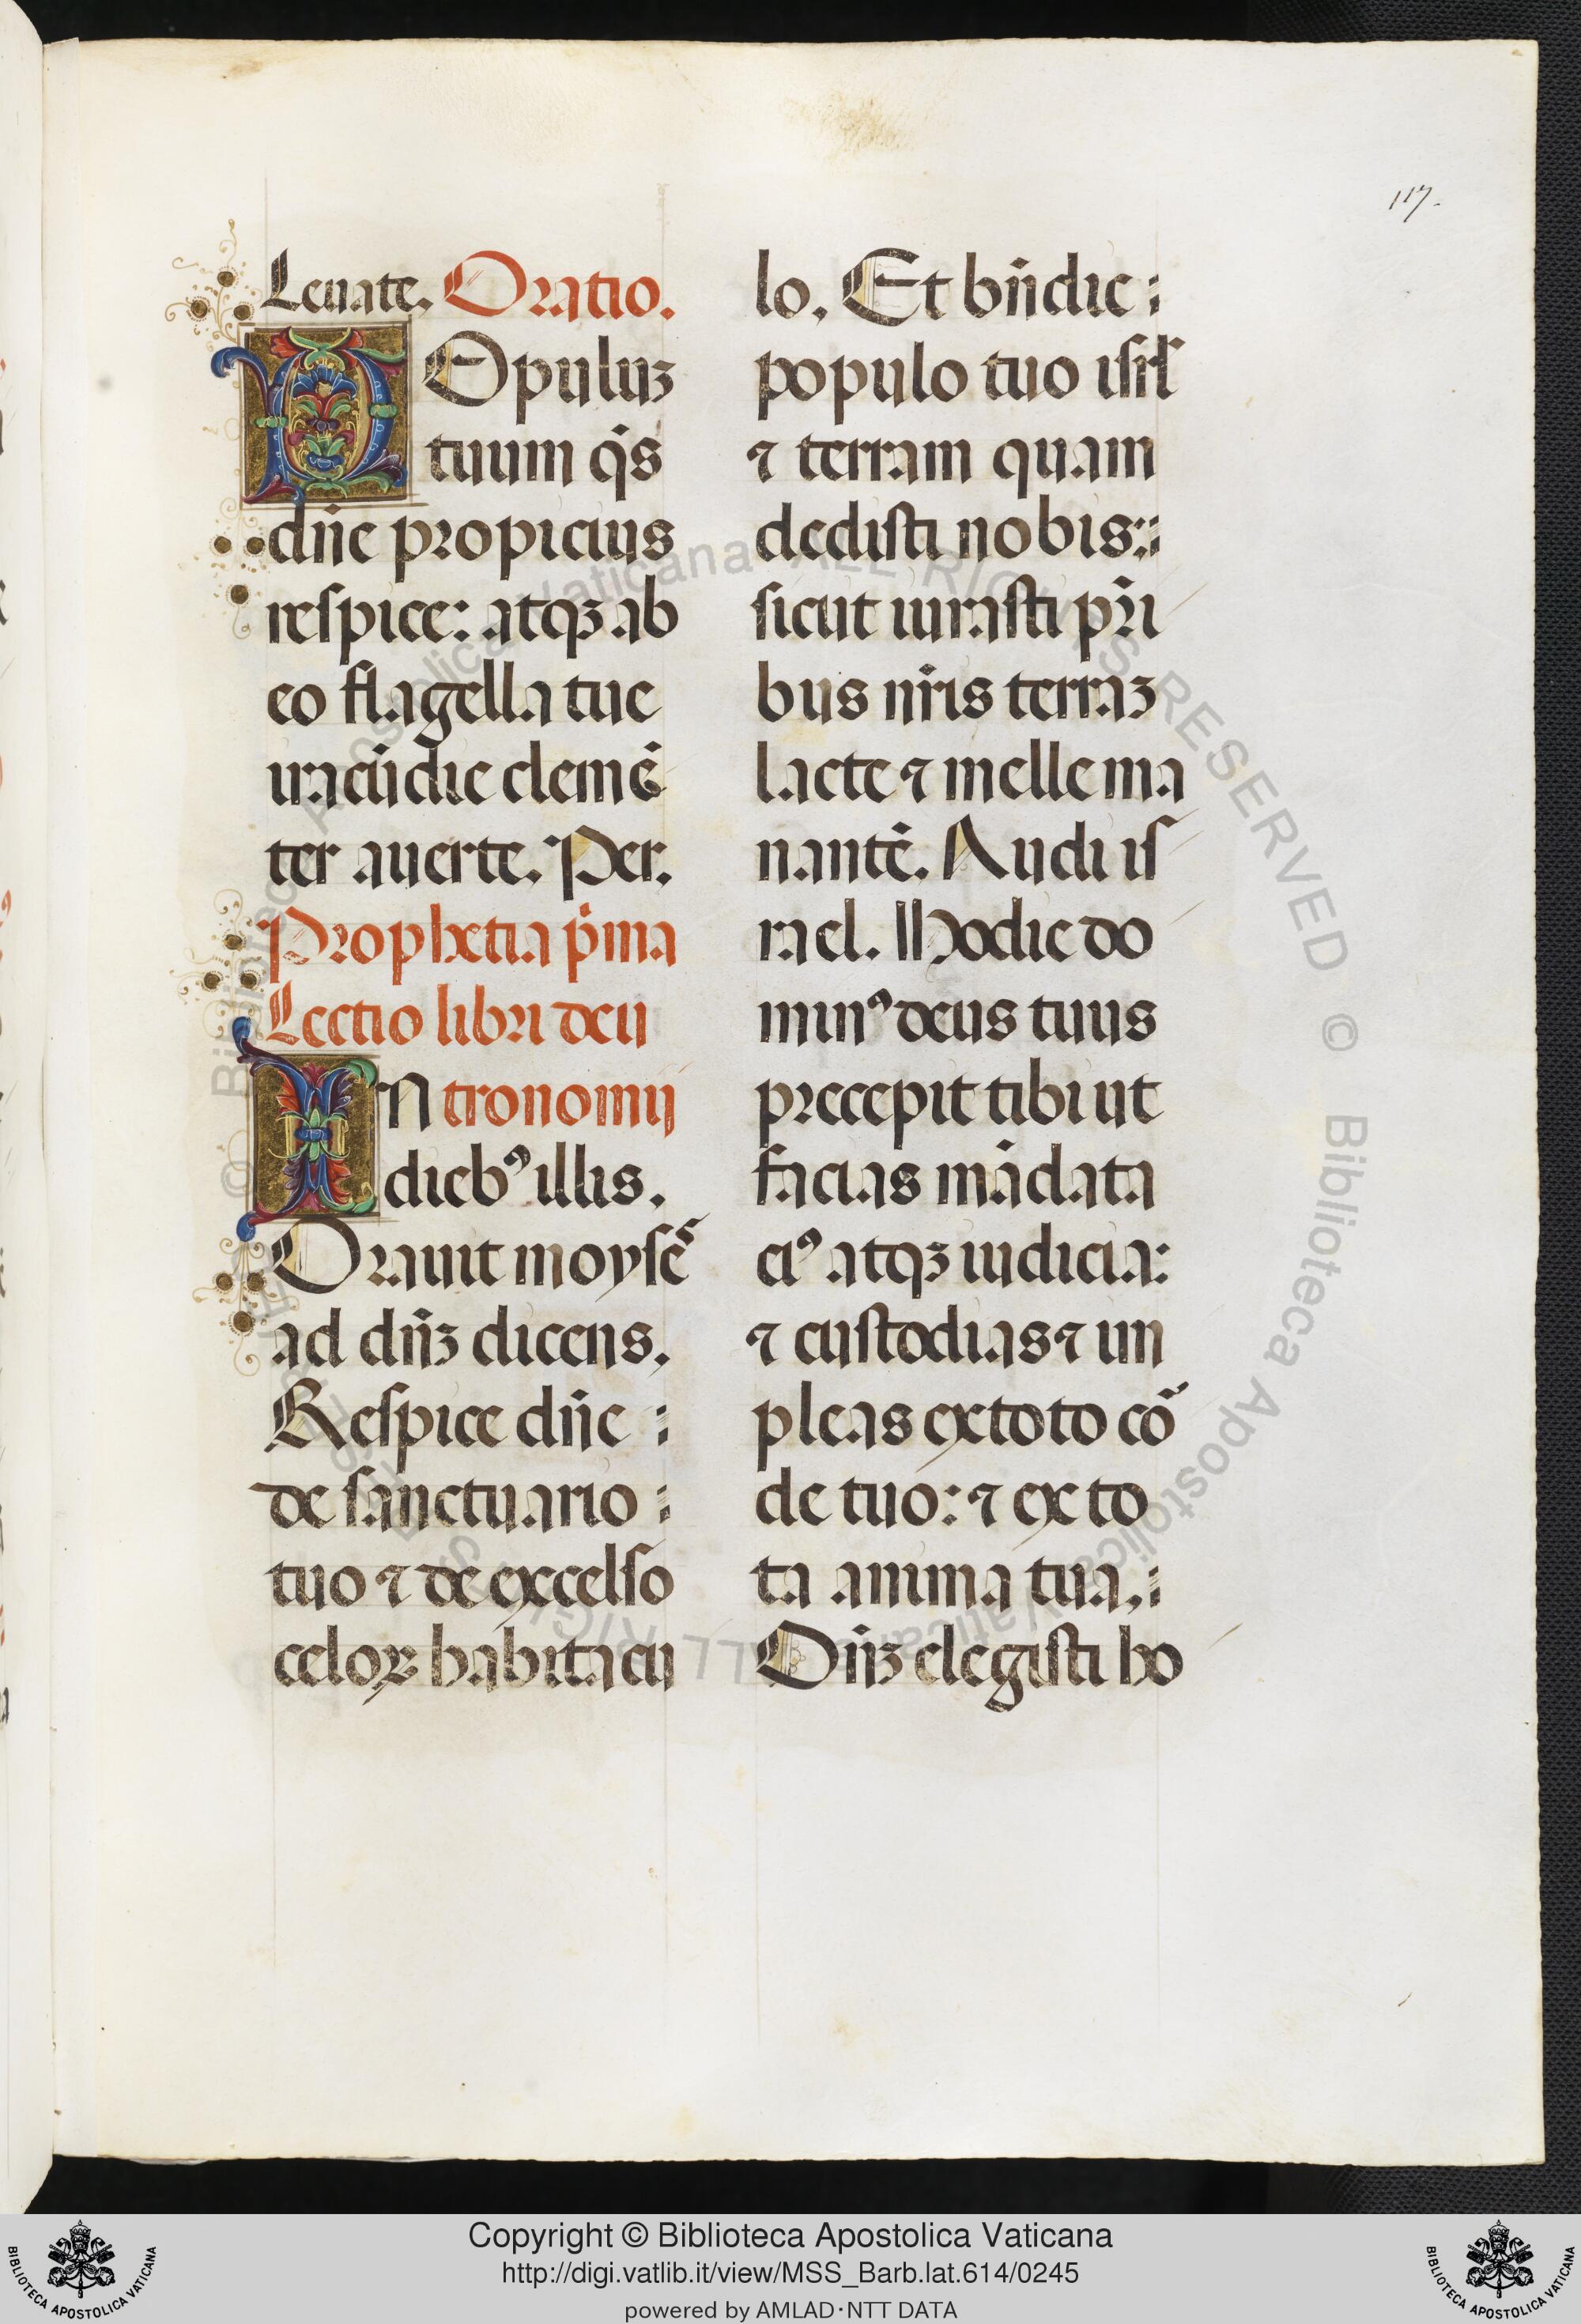 117.
Leuate. Oratio.
POpuluꝫ
tuum q̃s
dñe propicius
reſpice: atqꝫ ab
eo flagella tue
iracũdie clemẽ
ter auerte. Per.
Prophetia p̃ma
Lectio libri deu
IN tronomij
dieb⁹ illis.
Orauit moyſes
ad dñꝫ dicens.
Reſpice dñe :
de ſanctuario :
tuo ⁊ de excelſo
celoꝝ habitacu
lo. Et bñdic :
populo tuo iſrl̃
⁊ terram quam
dediſti nobis::
ſicut iuraſti pr̃i
bus nr̃is terraꝫ
lacte ⁊ melle ma
nantẽ. Audi iſ
rael. Hodie do
min⁹ deus tuus
precepit tibi ut
facias mãdata
ei⁹ atqꝫ iudicia:
⁊ cuſtodias ⁊ im
pleas ex toto cor
de tuo: ⁊ ex to
ta anima tua.:
Dñꝫ elegiſti ho
© Biblioteca Apostolica Vaticana ALL RIGHTS RESERVED © Biblioteca Apostolica Vaticana ALL RIGHTS RESERVED
BIBLIOTECA APOSTOLICA VATICANA
Copyright © Biblioteca Apostolica Vaticana
http://digi.vatlib.it/view/MSS_Barb.lat.614/0245
powered by AMLAD・NTT DATA
BIBLIOTECA APOSTOLICA VATICANA